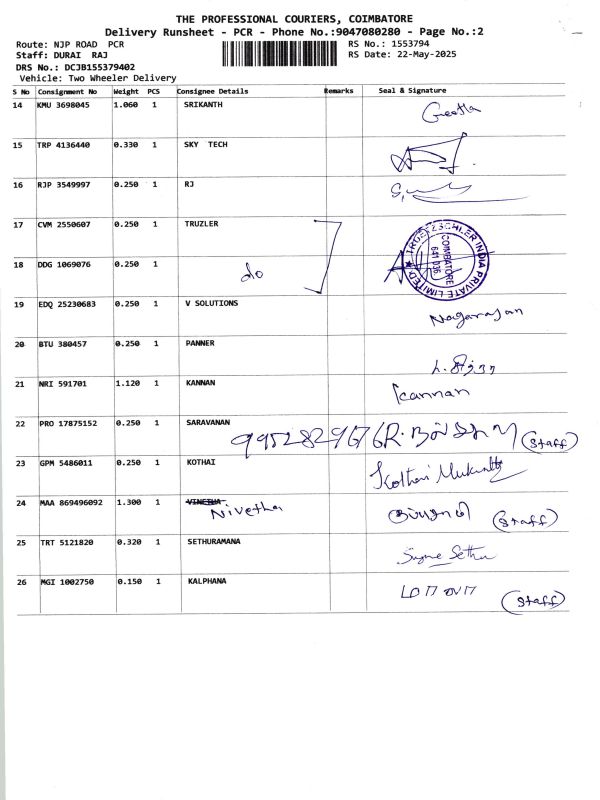 THE PROFESSIONAL COURIERS, COIMBATORE
Delivery Runsheet - PCR - Phone No.:9047080280 - Page No.:2
Route: NJP ROAD PCR
RS No.: 1553794
Staff: DURAI RAJ
RS Date: 22-May-2025
DRS No.: DCJB155379402
Vehicle: Two Wheeler Delivery
S No Consignment No Weight PCS Consignee Details Remarks Seal & Signature
14 KMU 3698045 1.060 1 SRIKANTH Geetha
15 TRP 4136440 0.330 1 SKY TECH
16 RJP 3549997 0.250 1 RJ
17 CVM 2550607 0.250 1 TRUZLER
TRUETZSCHLER INDIA PRIVATE LIMITED
COIMBATORE
641 036
18 DDG 1069076 0.250 1 do
19 EDQ 25230683 0.250 1 V SOLUTIONS Nagarajan
20 BTU 380457 0.250 1 PANNER
21 NRI 591701 1.120 1 KANNAN Kannan
22 PRO 17875152 0.250 1 SARAVANAN
(Staff)
23 GPM 5486011 0.250 1 KOTHAI Kothai
24 MAA 869496092 1.300 1 VINETHA
Nivetha (Staff)
25 TRT 5121820 0.320 1 SETHURAMANA Sethu
26 MGI 1002750 0.150 1 KALPHANA
(Staff)